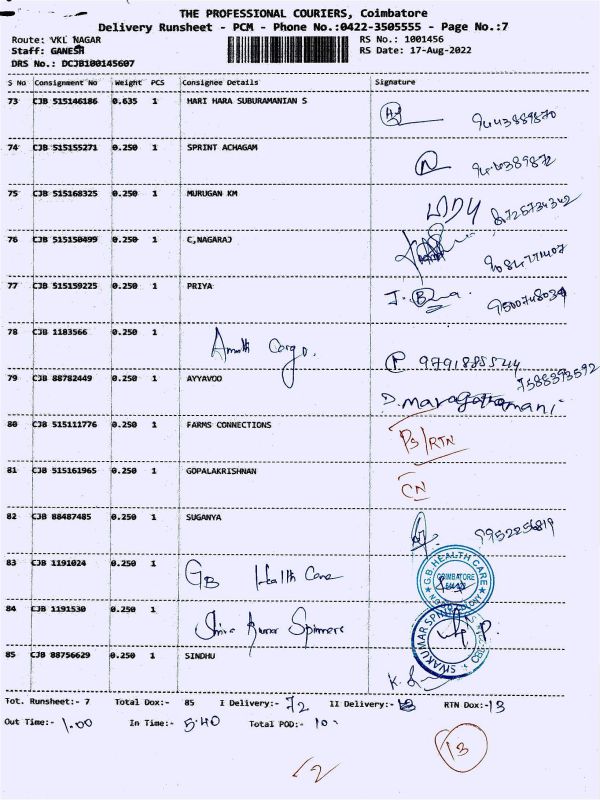 THE PROFESSIONAL COURIERS, Coimbatore
Delivery Runsheet - PCM - Phone No.:0422-3505555 - Page No.:7
Route: VKL NAGAR RS No.: 1001456
Staff: GANESH RS Date: 17-Aug-2022
DRS No.: DCJB100145607
S No Consignment No Weight PCS Consignee Details Signature
73 CJB 515146186 0.635 1 HARI HARA SUBURAMANIAN S
74 CJB 515155271 0.250 1 SPRINT ACHAGAM
75 CJB 515168325 0.250 1 MURUGAN KM
76 CJB 515150499 0.250 1 C,NAGARAJ
77 CJB 515159225 0.250 1 PRIYA
78 CJB 1183566 0.250 1 Amuth Cargo.
79 CJB 88782449 0.250 1 AYYAVOO
80 CJB 515111776 0.250 1 FARMS CONNECTIONS PS/RTN
81 CJB 515161965 0.250 1 GOPALAKRISHNAN CN
82 CJB 88487485 0.250 1 SUGANYA
83 CJB 1191024 0.250 1 GB Health Care G.B. HEALTH CARE COIMBATORE
84 CJB 1191530 0.250 1 Shiva Kumar Spinners SIVAKUMAR SPINN
85 CJB 88756629 0.250 1 SINDHU
Tot. Runsheet:- 7 Total Dox:- 85 I Delivery:- 72 II Delivery:- RTN Dox:- 13
Out Time:- 1.00 In Time:- 5.40 Total POD:- 10
13